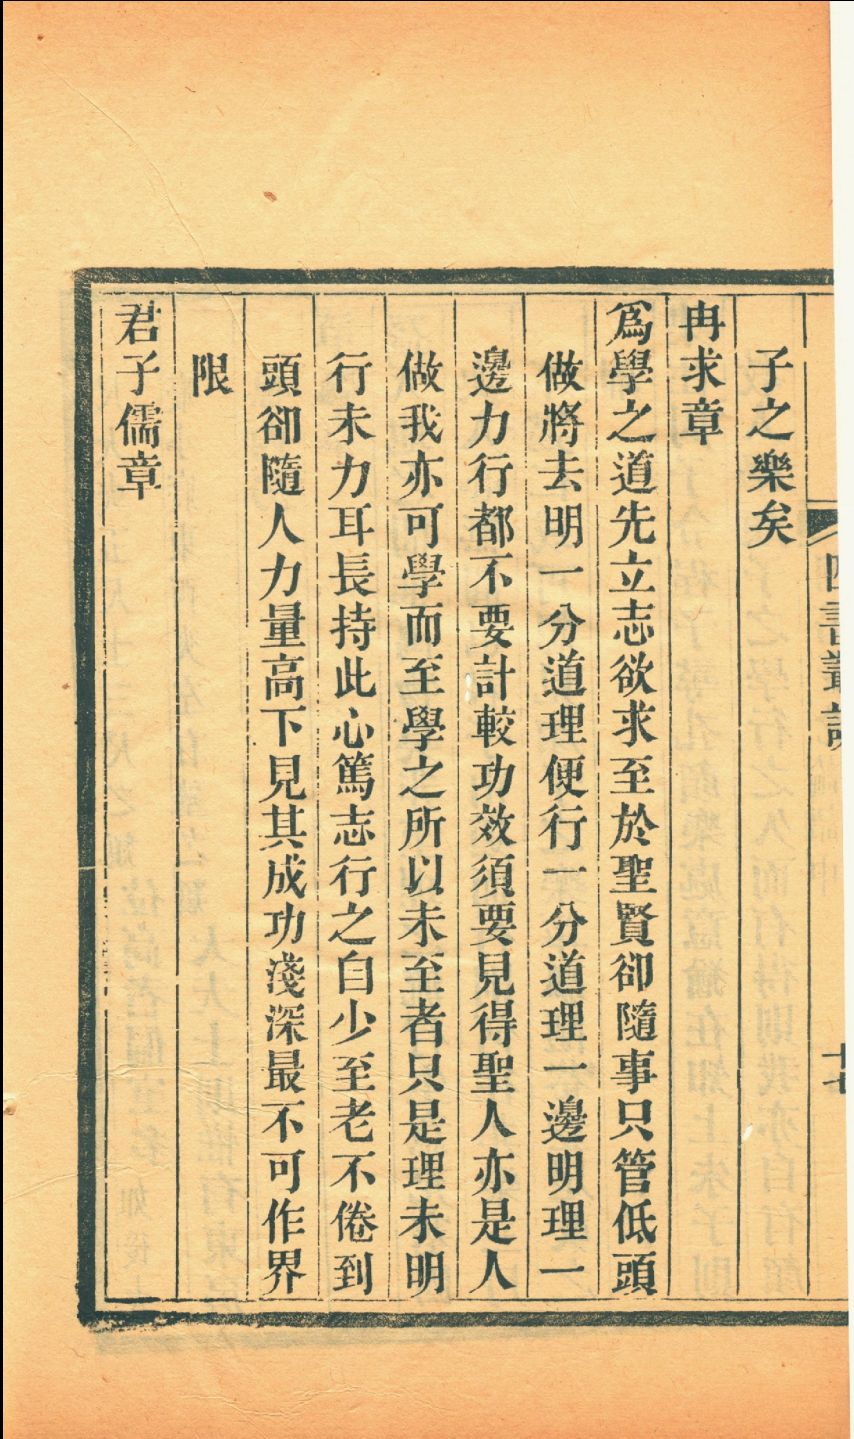 四書叢說
十七
子之樂矣
冉求章
爲學之道先立志欲求至於聖賢卻隨事只管低頭
做將去明一分道理便行一分道理一邊明理一
邊力行都不要計較功效須要見得聖人亦是人
做我亦可學而至學之所以未至者只是理未明
行未力耳長持此心篤志行之自少至老不倦到
頭卻隨人力量高下見其成功淺深最不可作界
限
君子儒章